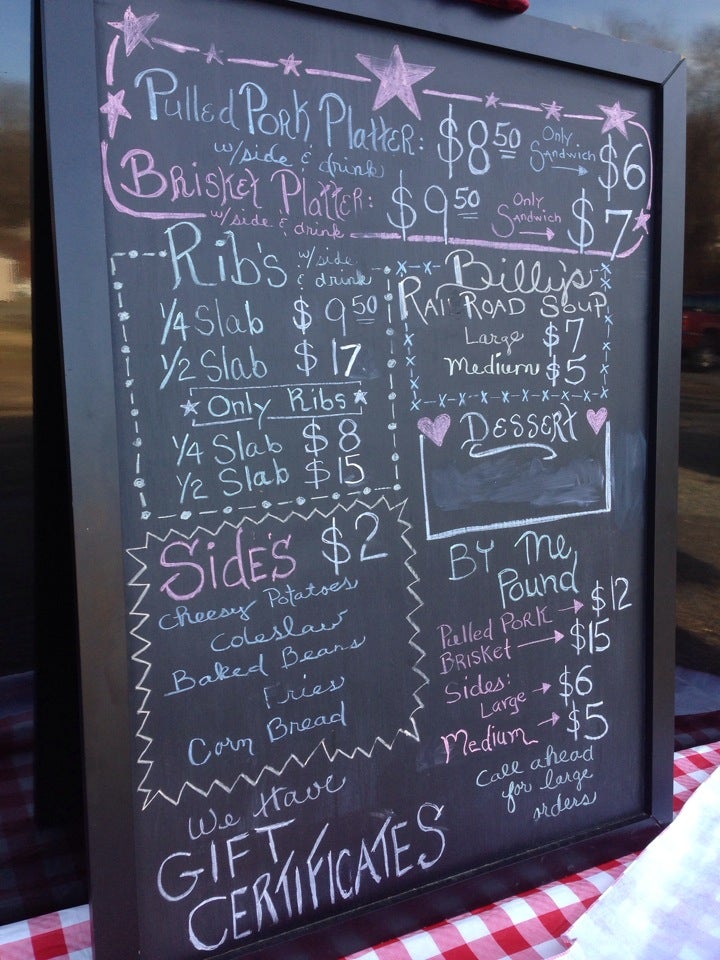 Pulled Pork Platter: $8.50 Only Sandwich → $6
w/side & drink
Brisket Platter: $9.50 Only Sandwich → $7
w/side & drink
Rib's w/side & drink
1/4 Slab $9.50
1/2 Slab $17
Only Ribs
1/4 Slab $8
1/2 Slab $15
Billy's
Railroad Soup
Large $7
Medium $5
Dessert
Side's $2
Cheesy Potatoes
Coleslaw
Baked Beans
Fries
Corn Bread
By the
Pound
Pulled Pork → $12
Brisket → $15
Sides:
Large → $6
Medium → $5
Call ahead
for large
orders
We Have
GIFT
CERTIFICATES